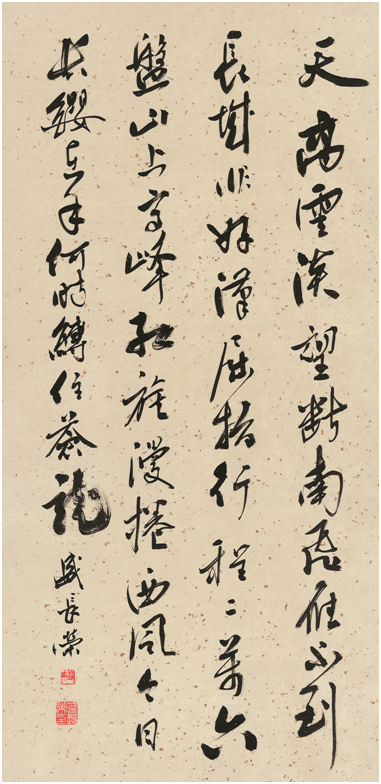 天高雲淡望斷南飛雁不到
長城非好漢屈指行程二萬六
盤山上高峰紅旗漫捲西風今日
長纓在手何時縛住蒼龍
盛長榮